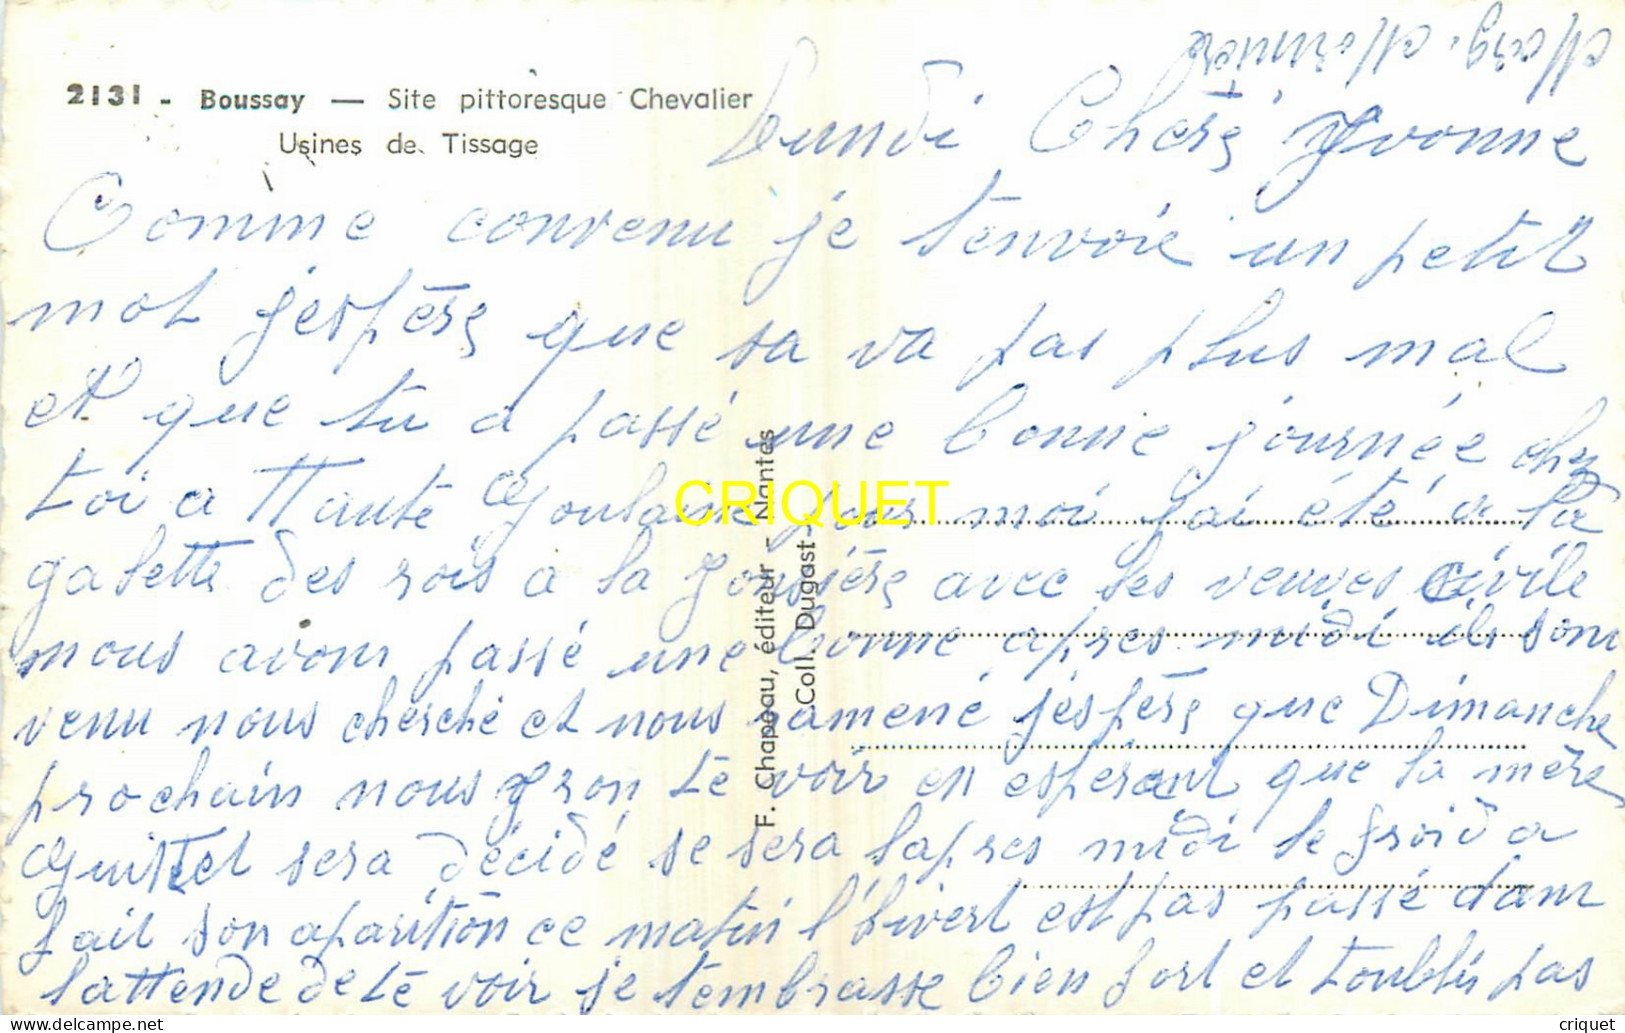 Marg. Mornière
2131 - Boussay — Site pittoresque Chevalier
Usines de Tissage
Lundi Chère Yvonne
Comme convenu je t'envoie un petit
mot j'espère que sa va pas plus mal
et que tu a passé une bonne journée chez
toi a Haute Goulaine pour moi j'ai été a la
galette des rois a la avec les veuves civile
nous avons passé une bonne apres midi ils sont
venu nous cherché et nous ramené j'espère que Dimanche
prochain nous yron te voir en espérant que la mère
Guittet sera décidé se sera l'apres midi le froid a
fait son aparition ce matin l'hivert est pas passé dans
l'attende de te voir je t'embrasse bien fort et t'oublis pas
F. Chapeau, éditeur - Nantes
Coll. Dugast
CRIQUET
criquet
delcampe.net